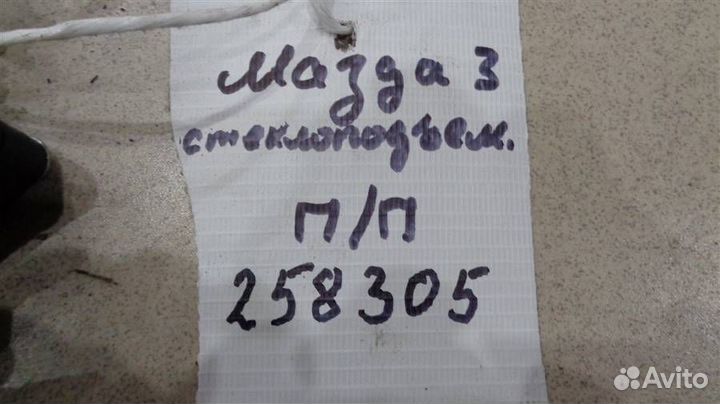 Мазда 3
стеклоподъем.
П/П
258305
Avito